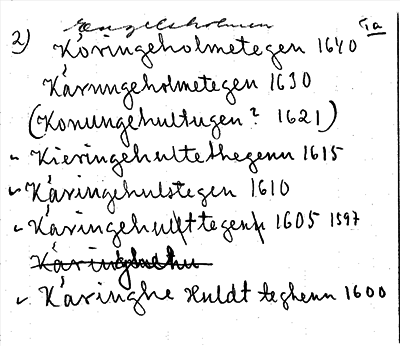 Engelsholmen
2) Köringeholmetegen 1640 Ta
Kärungeholmetegen 1630
(Konungehultugen? 1621)
Kieringehultethegenn 1615
Käringehulstegen 1610
Käringehulttegenn 1605 1597
Käringhe Huldt teghenn 1600